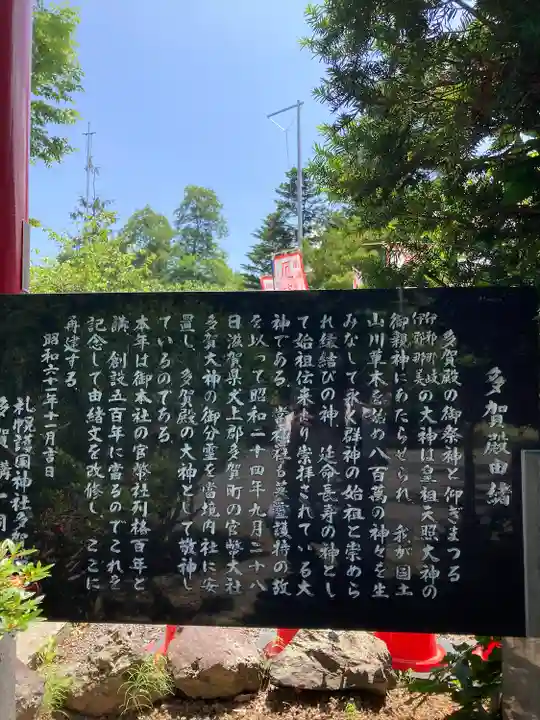 多賀殿由緒
多賀殿の御祭神と仰ぎまつる
伊邪那岐
伊邪那美の大神は皇祖天照大神の
御親神にわたらせられ、我が国土
山川草木を始め八百萬の神々を生
みなして永く群神の始祖と崇めら
れ縁結びの神、延命長寿の神とし
て始祖伝来より崇拝されている大
神である。当神社も英霊護持の故
を以って昭和二十四年九月二十八
日滋賀県犬上郡多賀町の官幣大社
多賀大神の御分霊を當境内社に安
置し、多賀殿の大神として敬神し
ているのである。
本年は御本社の官幣社列格百年と
講、創設五百年に當るのでこれを
記念して由緒文を改修し、ここに
再建する。
昭和六十年十一月吉日
札幌護国神社多賀
多賀講一同
厄